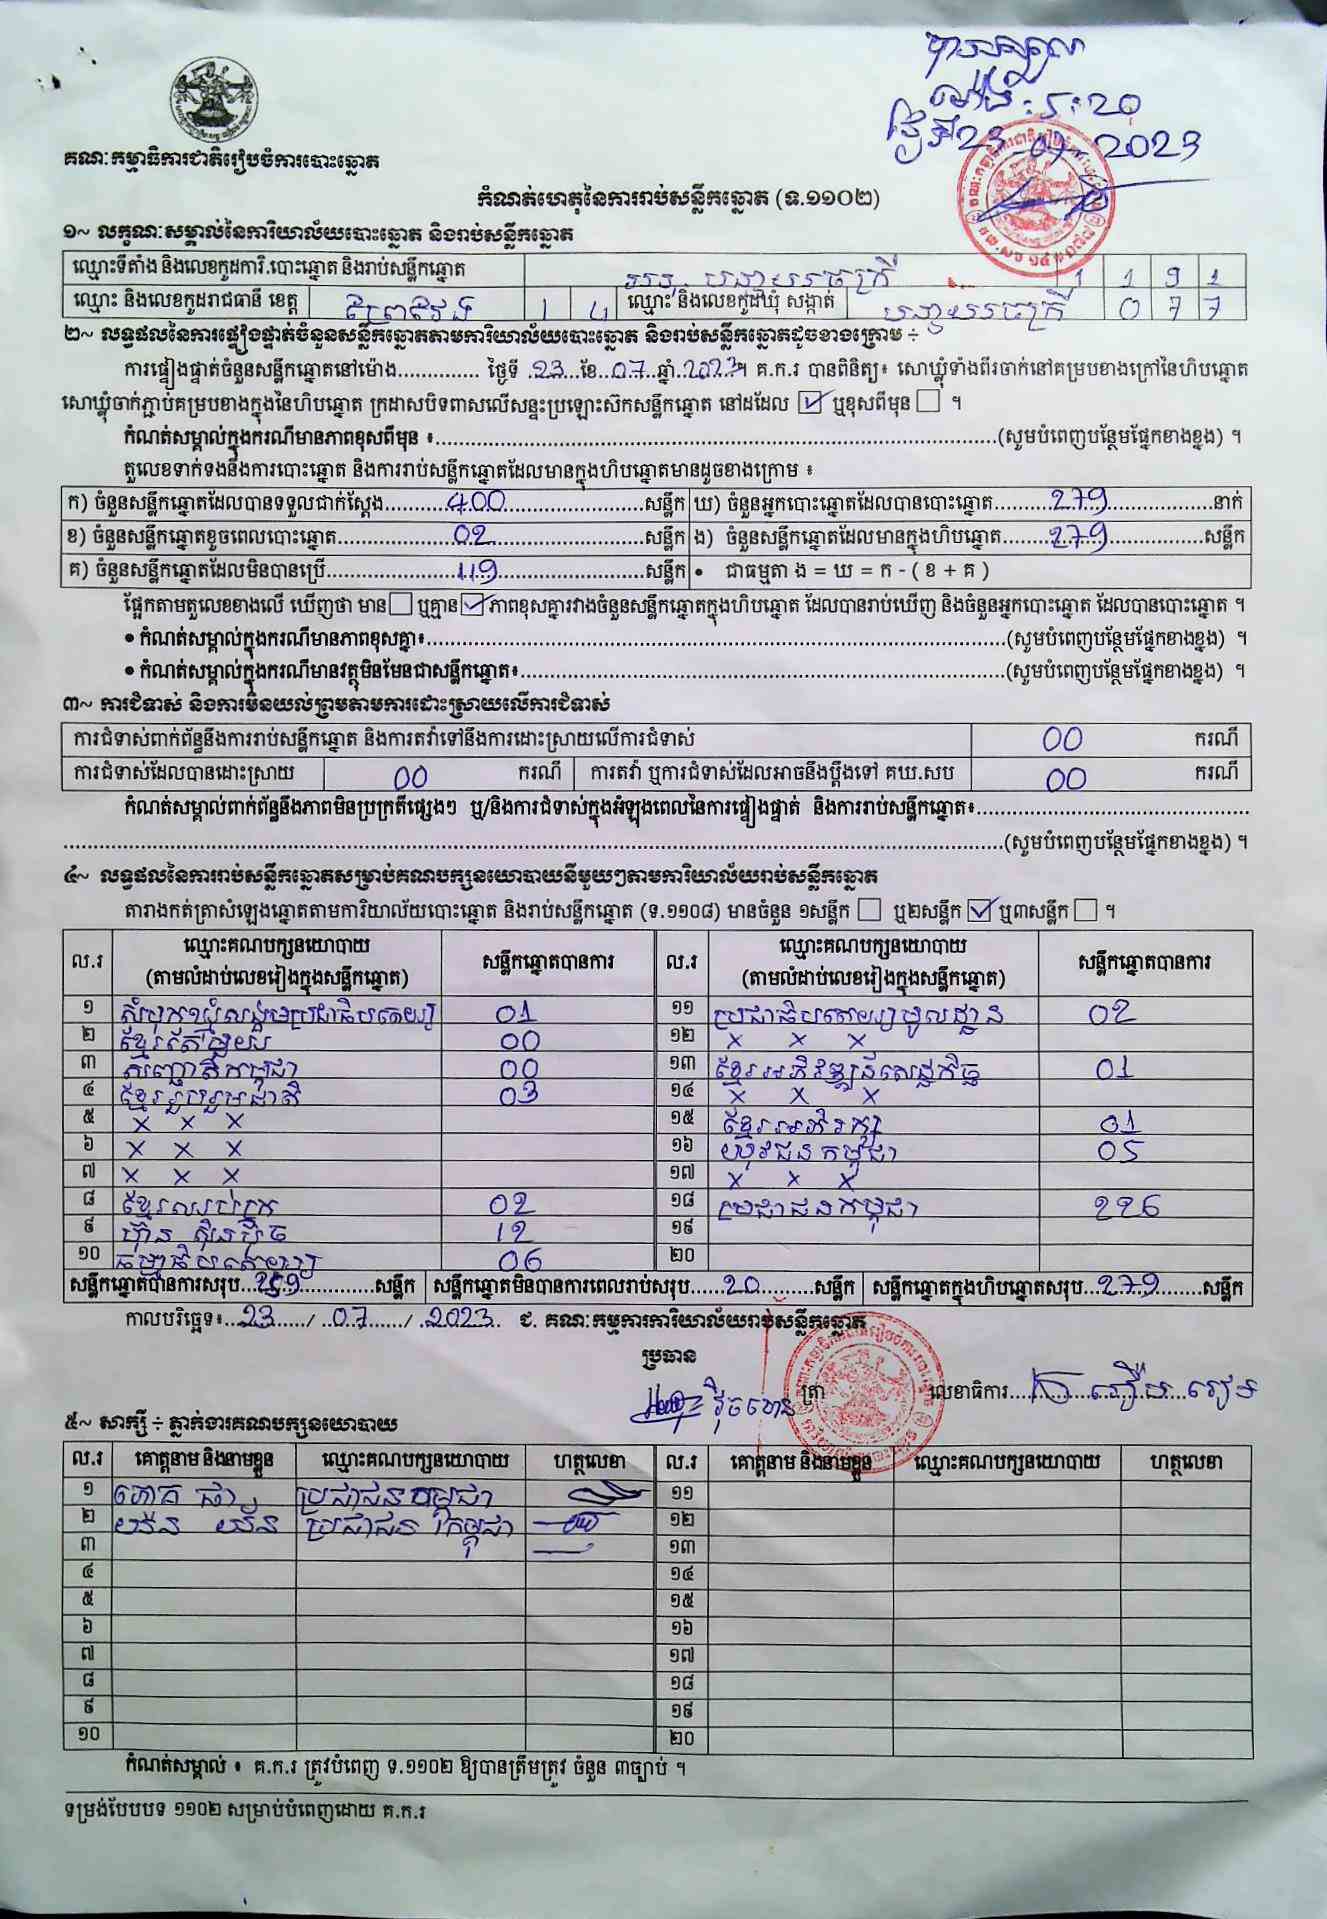 ម៉ោង:5:20
ថ្ងៃទី23-07-2023
គណៈកម្មាធិការជាតិរៀបចំការបោះឆ្នោត
កំណត់ហេតុនៃការរាប់សន្លឹកឆ្នោត (ទ.១១០២)
១~ លក្ខណៈសម្គាល់នៃការិយាល័យបោះឆ្នោត និងរាប់សន្លឹកឆ្នោត
ឈ្មោះទីតាំង និងលេខកូដការិ.បោះឆ្នោត និងរាប់សន្លឹកឆ្នោត 1 1 9 1
ឈ្មោះ និងលេខកូដរាជធានី ខេត្ត ព្រៃវែង 1 4 ឈ្មោះ និងលេខកូដឃុំ សង្កាត់ 0 7 7
២~ លទ្ធផលនៃការផ្ទៀងផ្ទាត់ចំនួនសន្លឹកឆ្នោតតាមការិយាល័យបោះឆ្នោត និងរាប់សន្លឹកឆ្នោតដូចខាងក្រោម ÷
ការផ្ទៀងផ្ទាត់ចំនួនសន្លឹកឆ្នោតនៅម៉ោង.............. ថ្ងៃទី .23...ខែ..07..ឆ្នាំ.2023.។ គ.ក.រ បានពិនិត្យ៖ សោឃ្លុំទាំងពីរចាក់នៅគម្របខាងក្រៅនៃហិបឆ្នោត
សោឃ្លុំចាក់ភ្ជាប់គម្របខាងក្នុងនៃហិបឆ្នោត ក្រដាសបិទពាសលើសន្ទះប្រឡោះស៊កសន្លឹកឆ្នោត នៅដដែល ☑ ឬខុសពីមុន ☐ ។
កំណត់សម្គាល់ក្នុងករណីមានភាពខុសពីមុន ៖..............................(សូមបំពេញបន្ថែមផ្នែកខាងខ្នង) ។
តួលេខទាក់ទងនឹងការបោះឆ្នោត និងការរាប់សន្លឹកឆ្នោតដែលមានក្នុងហិបឆ្នោតមានដូចខាងក្រោម ៖
ក) ចំនួនសន្លឹកឆ្នោតដែលបានទទួលជាក់ស្តែង..........400..........សន្លឹក ឃ) ចំនួនអ្នកបោះឆ្នោតដែលបានបោះឆ្នោត..........279..........នាក់
ខ) ចំនួនសន្លឹកឆ្នោតខូចពេលបោះឆ្នោត..........02..........សន្លឹក ង) ចំនួនសន្លឹកឆ្នោតដែលមានក្នុងហិបឆ្នោត..........279..........សន្លឹក
គ) ចំនួនសន្លឹកឆ្នោតដែលមិនបានប្រើ..........119..........សន្លឹក • ជាធម្មតា ង = ឃ = ក - ( ខ + គ )
ផ្អែកតាមតួលេខខាងលើ ឃើញថា មាន ☐ ឬគ្មាន ☑ ភាពខុសគ្នារវាងចំនួនសន្លឹកឆ្នោតក្នុងហិបឆ្នោត ដែលបានរាប់ឃើញ និងចំនួនអ្នកបោះឆ្នោត ដែលបានបោះឆ្នោត ។
• កំណត់សម្គាល់ក្នុងករណីមានភាពខុសគ្នា៖..............................(សូមបំពេញបន្ថែមផ្នែកខាងខ្នង) ។
• កំណត់សម្គាល់ក្នុងករណីមានវត្ថុមិនមែនជាសន្លឹកឆ្នោត៖..............................(សូមបំពេញបន្ថែមផ្នែកខាងខ្នង) ។
៣~ ការជំទាស់ និងការមិនយល់ព្រមតាមការដោះស្រាយលើការជំទាស់
ការជំទាស់ពាក់ព័ន្ធនឹងការរាប់សន្លឹកឆ្នោត និងការតវ៉ាទៅនឹងការដោះស្រាយលើការជំទាស់ 00 ករណី
ការជំទាស់ដែលបានដោះស្រាយ 00 ករណី ការតវ៉ា ឬការជំទាស់ដែលអាចនឹងប្តឹងទៅ គឃ.សប 00 ករណី
កំណត់សម្គាល់ពាក់ព័ន្ធនឹងភាពមិនប្រក្រតីផ្សេងៗ ឬ/និងការជំទាស់ក្នុងអំឡុងពេលនៃការផ្ទៀងផ្ទាត់ និងការរាប់សន្លឹកឆ្នោត៖..............................
..............................(សូមបំពេញបន្ថែមផ្នែកខាងខ្នង) ។
៤~ លទ្ធផលនៃការរាប់សន្លឹកឆ្នោតសម្រាប់គណបក្សនយោបាយនីមួយៗតាមការិយាល័យរាប់សន្លឹកឆ្នោត
តារាងកត់ត្រាសំឡេងឆ្នោតតាមការិយាល័យបោះឆ្នោត និងរាប់សន្លឹកឆ្នោត (ទ.១១០៨) មានចំនួន ១សន្លឹក ☐ ឬ២សន្លឹក ☑ ឬ៣សន្លឹក ☐ ។
ល.រ ឈ្មោះគណបក្សនយោបាយ (តាមលំដាប់លេខរៀងក្នុងសន្លឹកឆ្នោត) សន្លឹកឆ្នោតបានការ ល.រ ឈ្មោះគណបក្សនយោបាយ (តាមលំដាប់លេខរៀងក្នុងសន្លឹកឆ្នោត) សន្លឹកឆ្នោតបានការ
១ សំបុកឃ្មុំសង្គមប្រជាធិបតេយ្យ 01 ១១ ប្រជាធិបតេយ្យមូលដ្ឋាន 02
២ ខ្មែរតែមួយ 00 ១២ x x x
៣ សញ្ជាតិកម្ពុជា 00 ១៣ ខ្មែរអភិវឌ្ឍន៍សេដ្ឋកិច្ច 01
៤ ខ្មែររួបរួមជាតិ 03 ១៤ x x x
៥ x x x ១៥ ខ្មែរអភិរក្ស 01
៦ x x x ១៦ យុវជនកម្ពុជា 05
៧ x x x ១៧ x x x
៨ ខ្មែរឈប់ក្រ 02 ១៨ ប្រជាជនកម្ពុជា 226
៩ ហ៊្វុនស៊ិនប៉ិច 12 ១៩
១០ ធម្មាធិបតេយ្យ 06 ២០
សន្លឹកឆ្នោតបានការសរុប...259..........សន្លឹក សន្លឹកឆ្នោតមិនបានការពេលរាប់សរុប......20..........សន្លឹក សន្លឹកឆ្នោតក្នុងហិបឆ្នោតសរុប...279........សន្លឹក
កាលបរិច្ឆេទ៖...23....../ .07....../ .2023. ជ. គណៈកម្មការការិយាល័យរាប់សន្លឹកឆ្នោត
ប្រធាន
ត្រា លេខាធិការ
៥~ សាក្សី ÷ ភ្នាក់ងារគណបក្សនយោបាយ
ល.រ គោត្តនាម និងនាមខ្លួន ឈ្មោះគណបក្សនយោបាយ ហត្ថលេខា ល.រ គោត្តនាម និងនាមខ្លួន ឈ្មោះគណបក្សនយោបាយ ហត្ថលេខា
១ ប្រជាជនកម្ពុជា ១១
២ ប្រជាជន កម្ពុជា ១២
៣ ១៣
៤ ១៤
៥ ១៥
៦ ១៦
៧ ១៧
៨ ១៨
៩ ១៩
១០ ២០
កំណត់សម្គាល់ ៖ គ.ក.រ ត្រូវបំពេញ ទ.១១០២ ឱ្យបានត្រឹមត្រូវ ចំនួន ៣ច្បាប់ ។
ទម្រង់បែបបទ ១១០២ សម្រាប់បំពេញដោយ គ.ក.រ